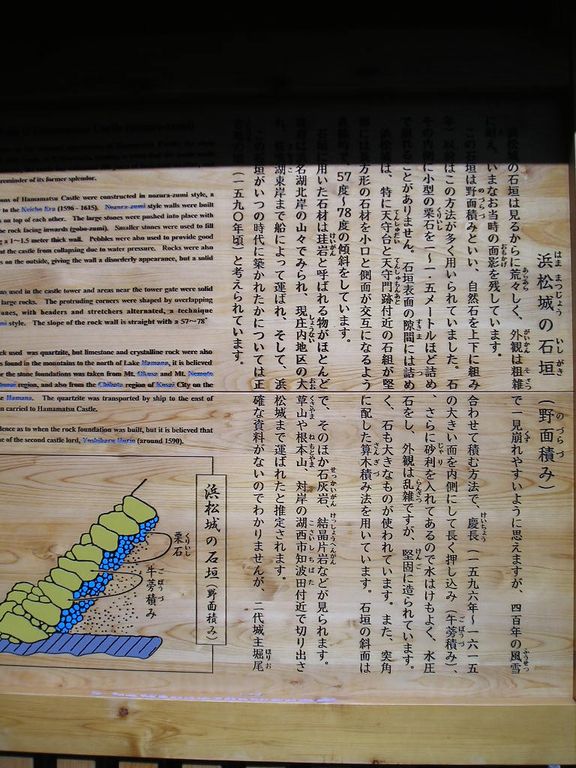 浜松城の石垣（野面積み）
の石垣は見るからに荒々しく、外観は粗雑で一見崩れやすいように思えますが、四百年の風雪
に耐え、いまなお当時の面影を残しています。
この石垣は野面積みといい、自然石を上下に組み合わせて積む方法で、慶長（一五九六年～一六一五
年）以前はこの方法が多く用いられていました。石の大きい面を内側にして長く押し込み（牛蒡積み）、
その内側に小型の栗石を一～一・五メートルほど詰め、さらに砂利を入れてあるので水はけもよく、水圧
で崩れることがありません。石垣表面の隙間には詰め石をし、外観は乱雑ですが、堅固に造られています。
浜松城は、特に天守台と天守門跡付近の石組が堅く、石も大きなものが使われています。また、突角
部には長方形の石材を小口と側面が交互になるように配した算木積み法を用いています。石垣の斜面は
57度～78度の傾斜をしています。
石垣に用いた石材は珪岩と呼ばれる物がほとんどで、そのほか石灰岩、結晶片岩などが見られます。
珪岩は浜名湖北岸の山々でみられ、現庄内地区の大草山や根本山、対岸の湖西市知波田付近で切り出さ
れ、佐鳴湖東岸まで船によって運ばれ、そして、浜松城まで運ばれたと推定されます。
この石垣がいつの時代に築かれたかについては正確な資料がないのでわかりませんが、二代城主堀尾
（一五九〇年頃）と考えられています。
reminder of its former splendor.
ons of Hamamatsu Castle were constructed in nozura-zumi style, a
to the Keicho Era (1596 - 1615). Nozura-zumi style walls were built
on top of each other. The large stones were pushed into place with
the rock facing inwards (gobo-zumi). Smaller stones were used to fill
g a 1～1.5 meter thick wall. Pebbles were also used to provide good
t the castle from collapsing due to water pressure. Rocks were also
s on the outside, giving the wall a disorderly appearance, but a solid
s used in the castle tower and areas near the tower gate were solid
large rocks. The protruding corners were shaped by overlapping
nes, with headers and stretchers alternated, a technique
style. The slope of the rock wall is straight with a 57～78°
ck used was quartzite, but limestone and crystalline rock were also
s found in the mountains to the north of Lake Hamana, it is believed
r the stone foundations was taken from Mt. Okusa and Mt. Nemoto
region, and also from the Chibata region of Kosai City on the
Hamana. The quartzite was transported by ship to the east of
n carried to Hamamatsu Castle.
dence as to when the rock foundation was built, but it is believed that
e of the second castle lord, Yoshiharu Horio (around 1590).
浜松城の石垣（野面積み）
栗石
牛蒡積み